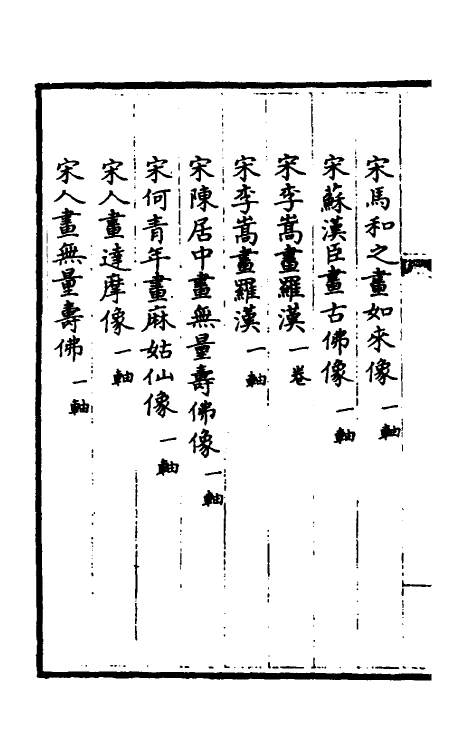 宋馬和之畫如來像一軸
宋蘇漢臣畫古佛像一軸
宋李嵩畫羅漢一卷
宋李嵩畫羅漢一軸
宋陳居中畫無量壽佛像一軸
宋何青年畫麻姑仙像一軸
宋人畫達摩像一軸
宋人畫無量壽佛一軸